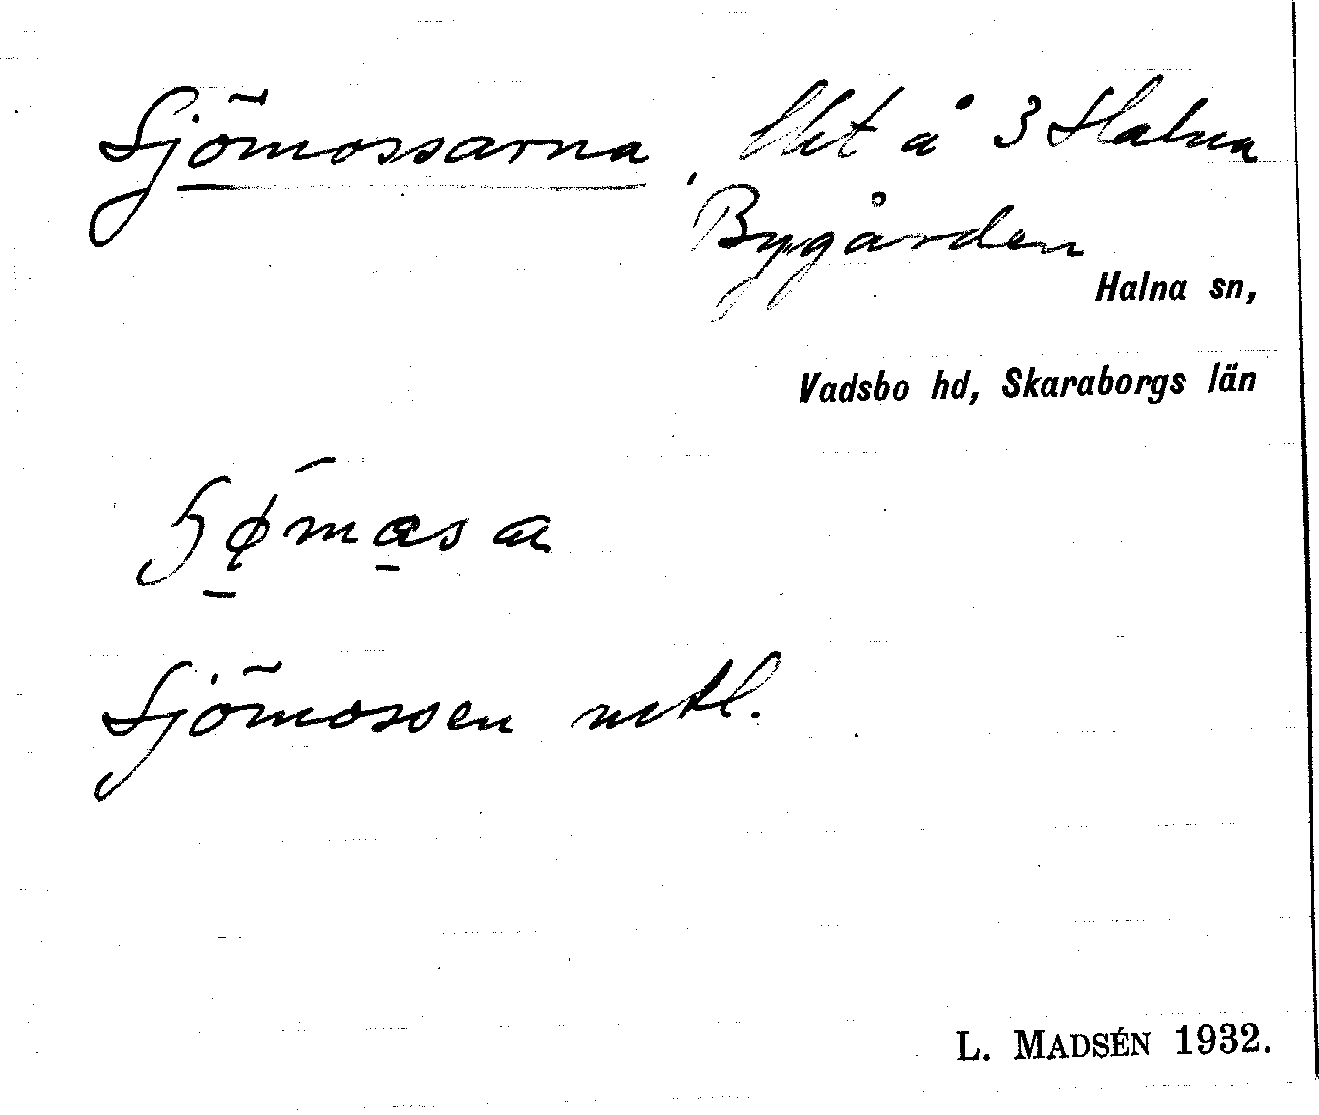 Sjömossarna, Utet å 3 Halna
Bygården
Halna sn,
Vadsbo hd, Skaraborgs län
Sjömossen mtl.
L. MADSÉN 1932.